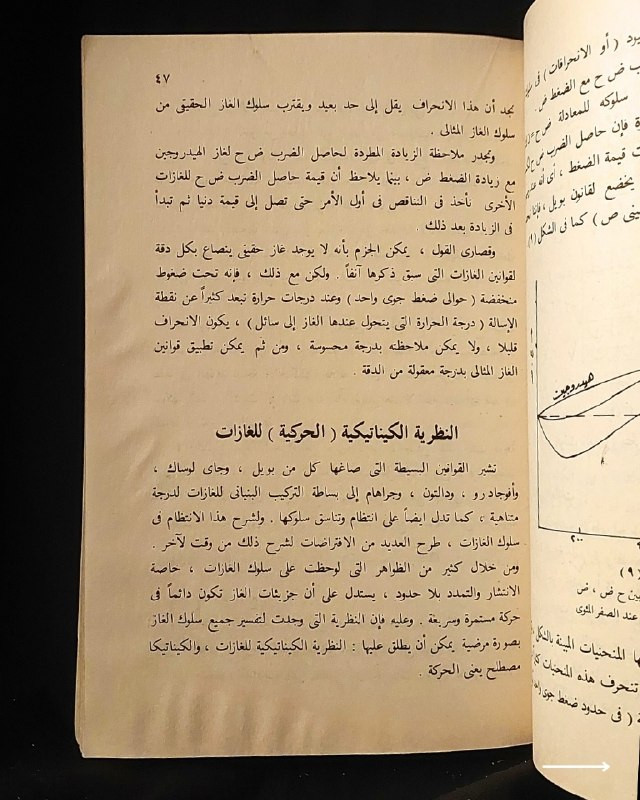 ٤٧
نجد أن هذا الانحراف يقل إلى حد بعيد ويقترب سلوك الغاز الحقيقى من
سلوك الغاز المثالى .
وتجدر ملاحظة الزيادة المطردة لحاصل الضرب ض ح لغاز الهيدروجين
مع زيادة الضغط ض ، بينما يلاحظ أن قيمة حاصل الضرب ض ح للغازات
الأخرى تأخذ فى التناقص فى أول الأمر حتى تصل إلى قيمة دنيا ثم تبدأ
فى الزيادة بعد ذلك .
وقصارى القول ، يمكن الجزم بأنه لا يوجد غاز حقيقى ينصاع بكل دقة
لقوانين الغازات التى سبق ذكرها آنفاً . ولكن مع ذلك ، فإنه تحت ضغوط
منخفضة ( حوالى ضغط جوى واحد ) وعند درجات حرارة تبعد كثيراً عن نقطة
الإسالة ( درجة الحرارة التى يتحول عندها الغاز إلى سائل ) ، يكون الانحراف
قليلا ، ولا يمكن ملاحظته بدرجة محسوسة ، ومن ثم يمكن تطبيق قوانين
الغاز المثالى بدرجة معقولة من الدقة .
النظرية الكيناتيكية ( الحركية ) للغازات
تشير القوانين البسيطة التى صاغها كل من بويل ، وجاى لوساك ،
وأفوجادرو ، ودالتون ، وجراهام إلى بساطة التركيب البنيانى للغازات لدرجة
متناهية ، كما تدل ايضاً على انتظام وتناسق سلوكها . ولشرح هذا الانتظام فى
سلوك الغازات ، طرح العديد من الافتراضات لشرح ذلك من وقت لآخر .
ومن خلال كثير من الظواهر التى لوحظت على سلوك الغازات ، خاصة
الانتشار والتمدد بلا حدود ، يستدل على أن جزيئات الغاز تكون دائماً فى
حركة مستمرة وسريعة . وعليه فإن النظرية التى وجدت لتفسير جميع سلوك الغاز
بصورة مرضية يمكن أن يطلق عليها : النظرية الكيناتيكية للغازات ، والكيناتيكا
مصطلح يعنى الحركة .
( أو الانحرافات ) فى
ض ح مع الضغط ض .
سلوكه للمعادلة
فإن حاصل الضرب ض ح
قيمة الضغط ، أى أنه
يخضع لقانون بويل ،
ض ) كما فى الشكل ( ٩ )
هيدروجين
٢٠٠
٩ )
ح ض ، ض
عند الصفر المئوى
المنحنيات المبينة بالشكل
تنحرف هذه المنحنيات
( فى حدود ضغط جوى واحد